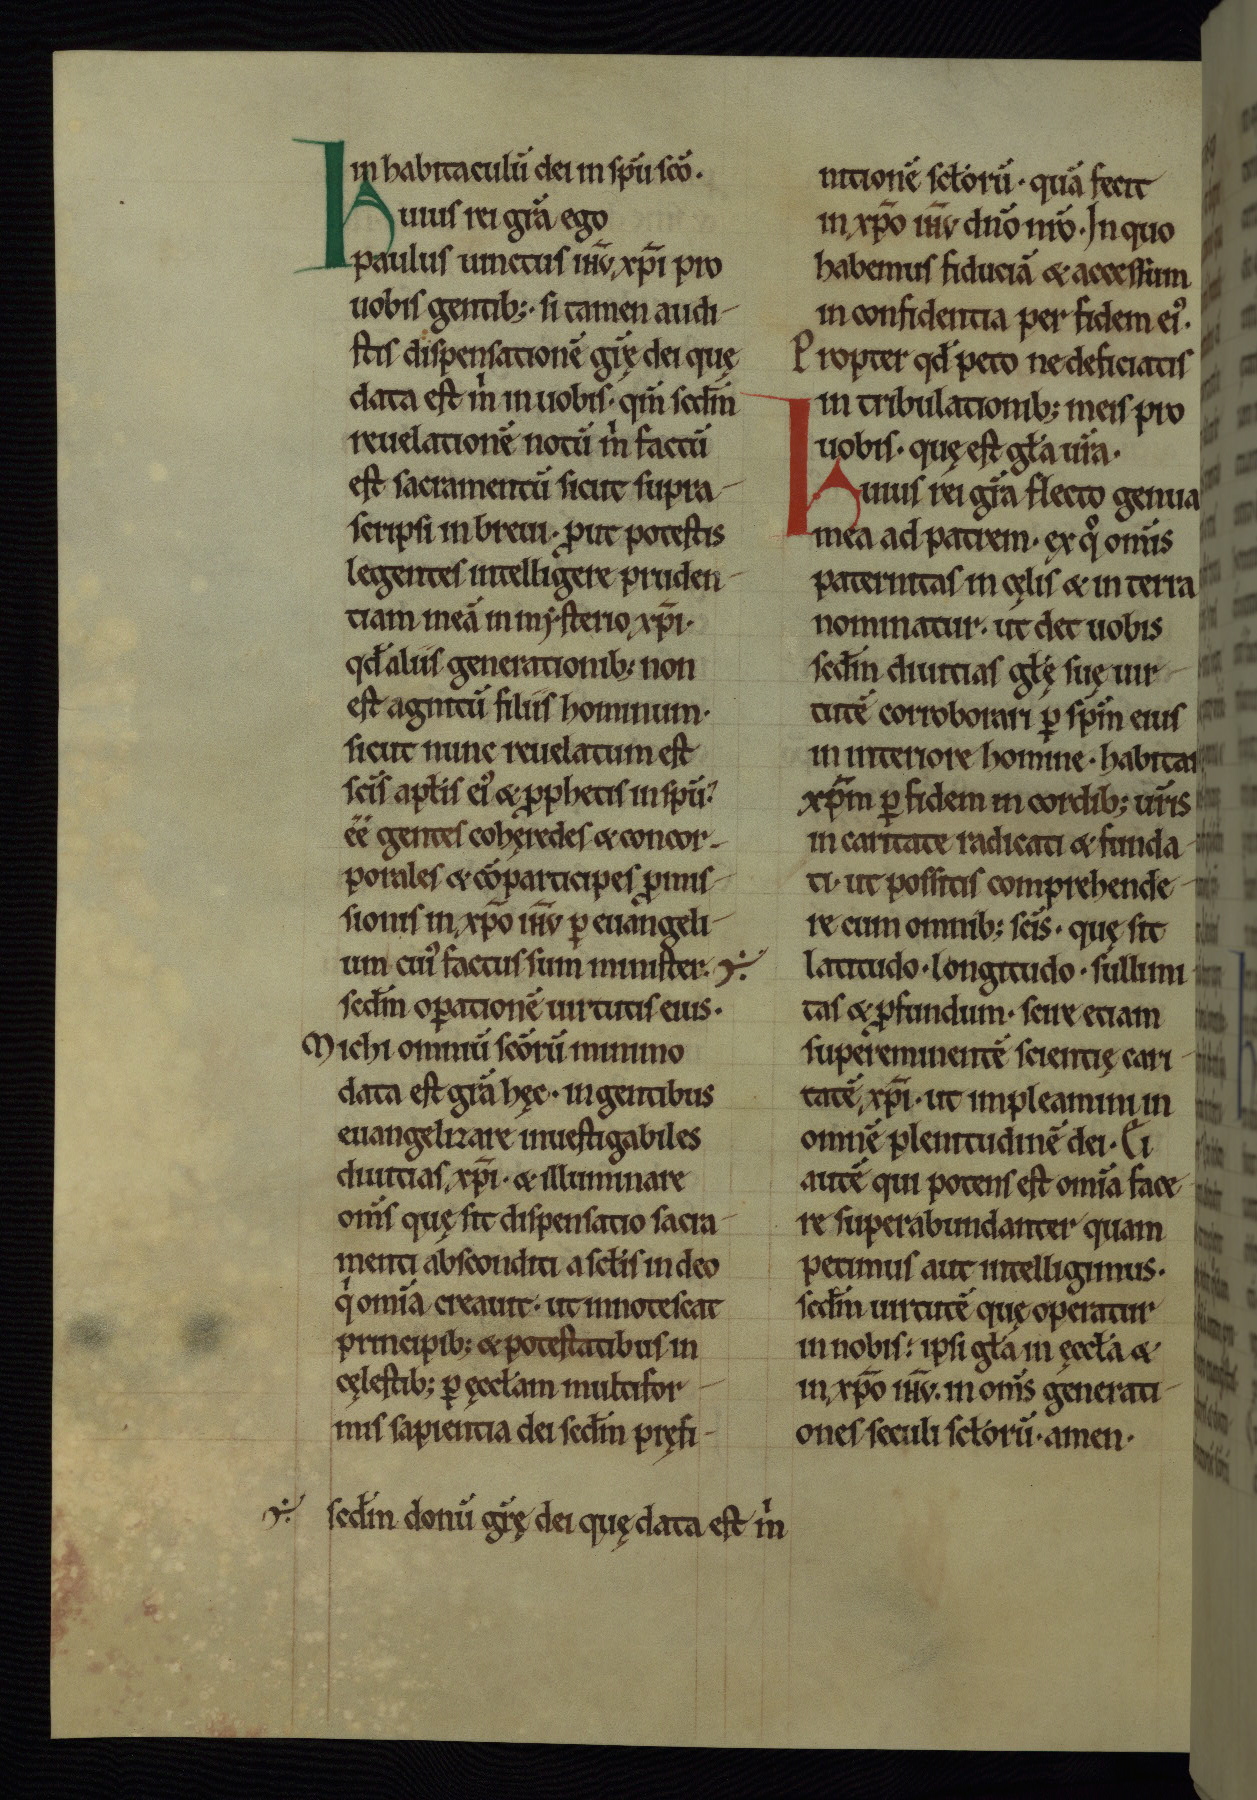 in habitaculū dei in spū scō.
Huius rei grā ego
paulus uinctus iħū xp̄i pro
uobis gentib;. si tamen audi-
stis dispensationē grę̄ dei quę
data est m̍ in uobis. qm̄ scdm̄
reuelationē notū m̍ factū
est sacramentū sicut supra-
scripsi in breui. ꝓut potestis
legentes intelligere pruden-
tiam meā in mẏsterio xp̄i.
qđ aliis generationib; non
est agnitū filiis hominum.
sicut nunc reuelatum est
scīs aptīs ei᷒ & ꝓphetis in spū?
ēē gentes cohęredes & concor-
porales & cōparticipes ꝓmis-
sionis in xp̄o iħū ꝑ euangeli-
um cui᷒ factus sum minister.
scdm̄ oꝑationē uirtutis eius.
Michi omniū scōrū minimo
data est grā hęc. in gentibus
euangelizare inuestigabiles
diuitias xp̄i. & illuminare
om̄s quę sit dispensatio sacra-
menti absconditi a scłis in deo
q̍ omīa creauit. ut innotescat
principib; & potestatibus in
cęlestib; ꝑ ęccłam multifor-
mis sapientia dei scdm̄ pręfi-
scdm̄ donū grę̄ dei quę data est m̍
nitionē scłorū. quā fecit
in xp̄o iħū dn̄o nr̄o. In quo
habemus fiduciā & accessum
in confidentia per fidem ei᷒.
Propter qđ peto ne deficiatis
in tribulationib; meis pro
uobis. quę est gła ur̄a.
Huius rei grā flecto genua
mea ad patrem. ex qͦ om̄is
paternitas in cęlis & in terra
nominatur. ut det uobis
scdm̄ diuitias głę suę uir-
tutē corroborari ꝑ spm̄ eius
in interiore homine. habitar
xp̄m ꝑ fidem in cordib; ur̄is
in caritate radicati & funda-
ti. ut possitis comprehende-
re cum omnib; scīs. quę sit
latitudo. longitudo. sullimi
tas & ꝓfundum. scire etiam
supereminentē scientię cari-
tatē xp̄i. ut impleamini in
omnē plenitudinē dei. Ei
autē qui potens est omīa face-
re superabundanter quam
petimus aut intelligimus.
scdm̄ uirtutē quę operatur
in nobis: ipsi gła in ęccła &
in xp̄o iħū. in om̄s generati-
ones seculi scłorū. amen.